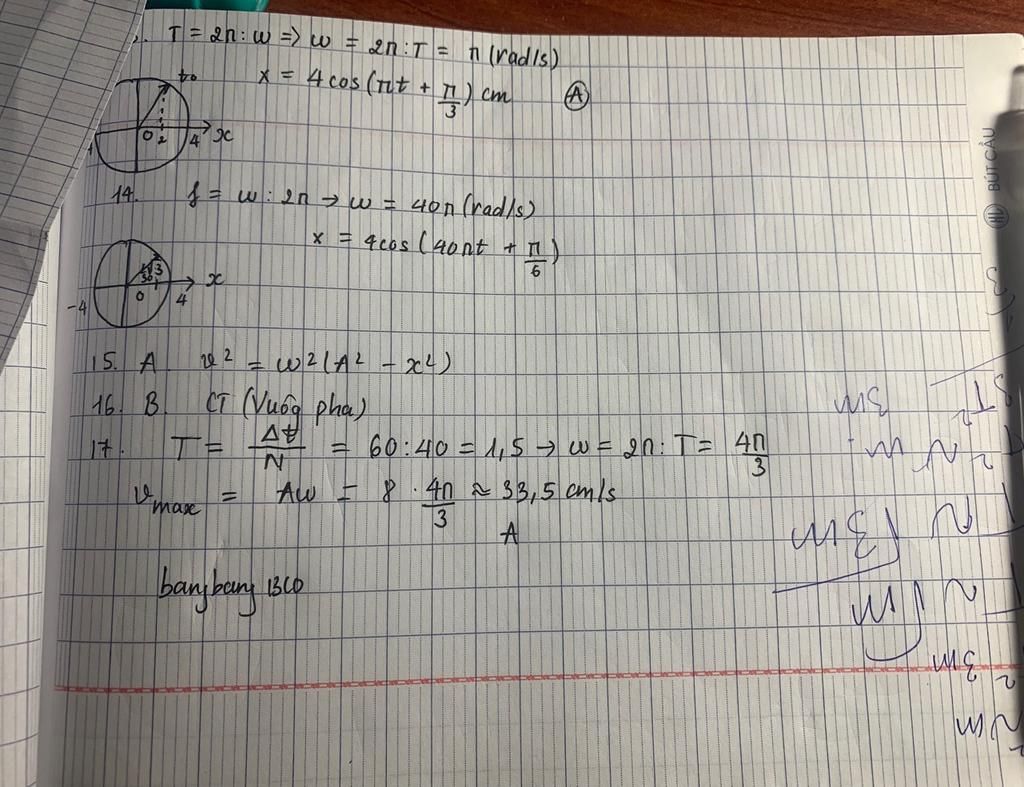 T = 2π : ω => ω = 2π : T = π (rad/s)
x = 4cos(πt + π/3) cm Ⓐ
t₀
0 2 4 x
14. f = ω : 2π → ω = 40π (rad/s)
x = 4cos(40πt + π/6)
-4 0 4 x
15. A v² = ω²(A² - x²)
16. B. CT (Vuôg pha)
17. T = Δt/N = 60 : 40 = 1,5 → ω = 2π : T = 4π/3
vmax = Aω = 8 . 4π/3 ≈ 33,5 cm/s
A
BÚT CẦU